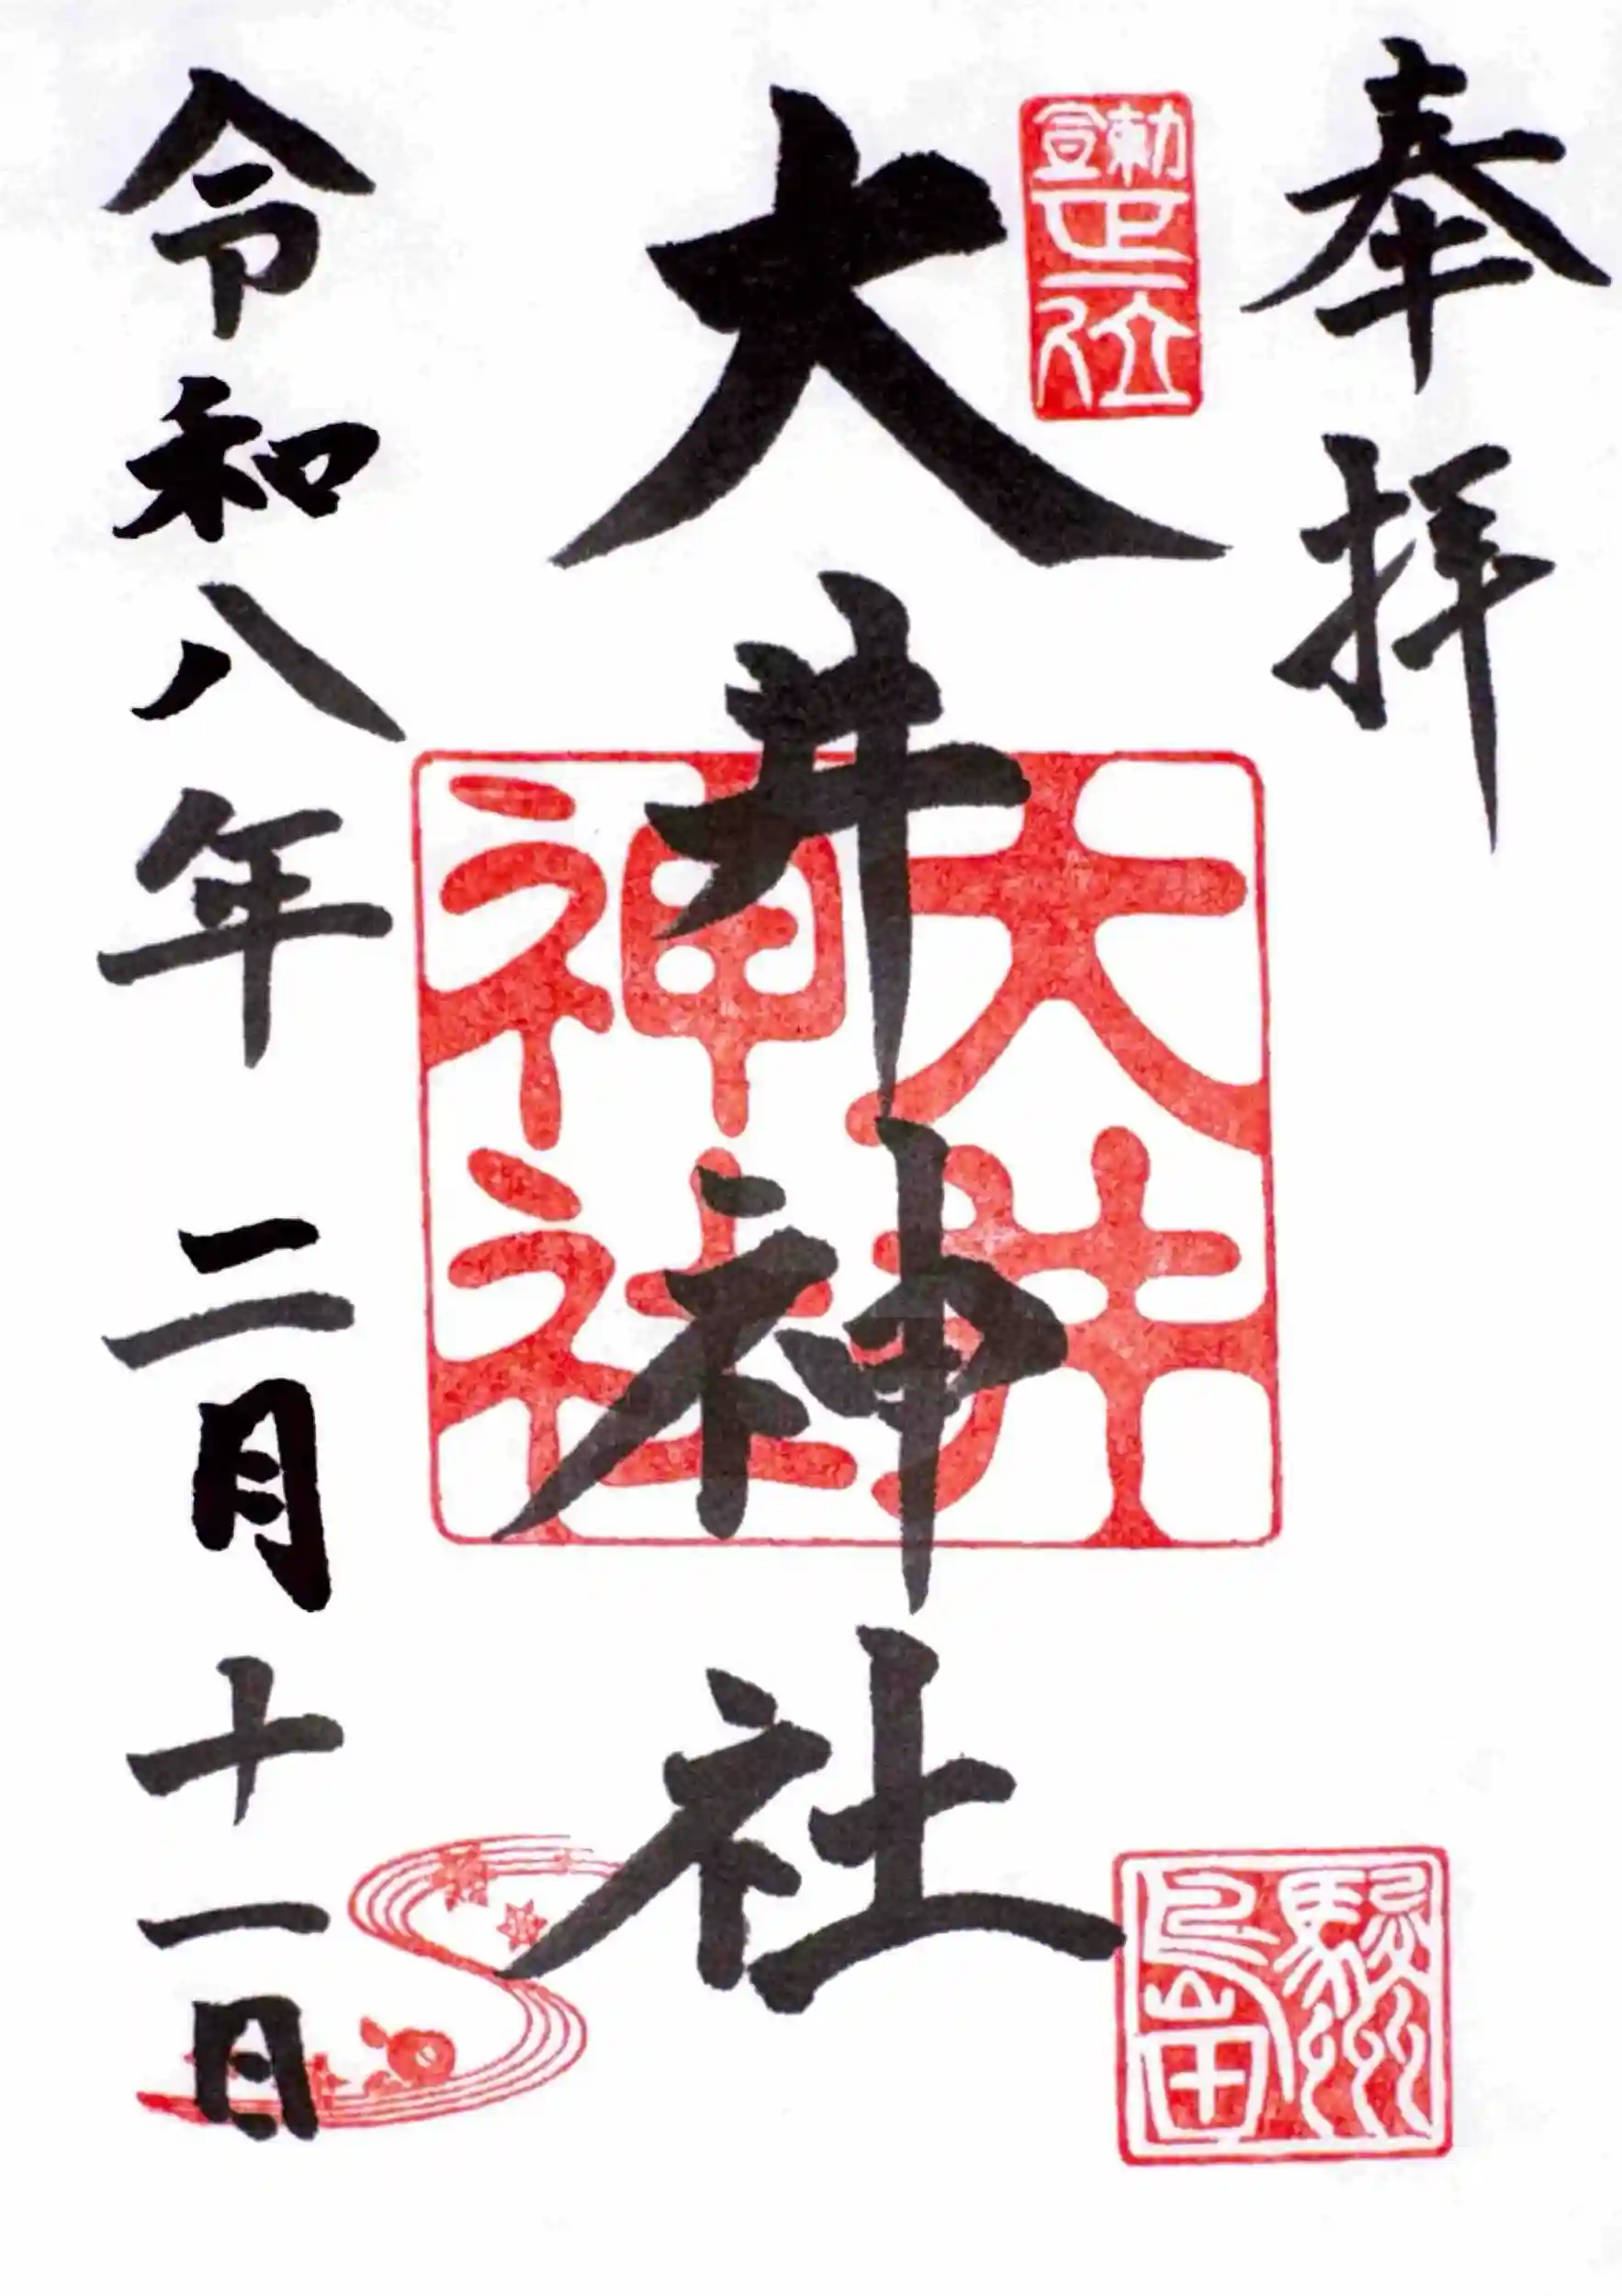 奉拝
勅宣
正一位
大井神社
大井
神社
駿州
島田
令和八年二月十一日